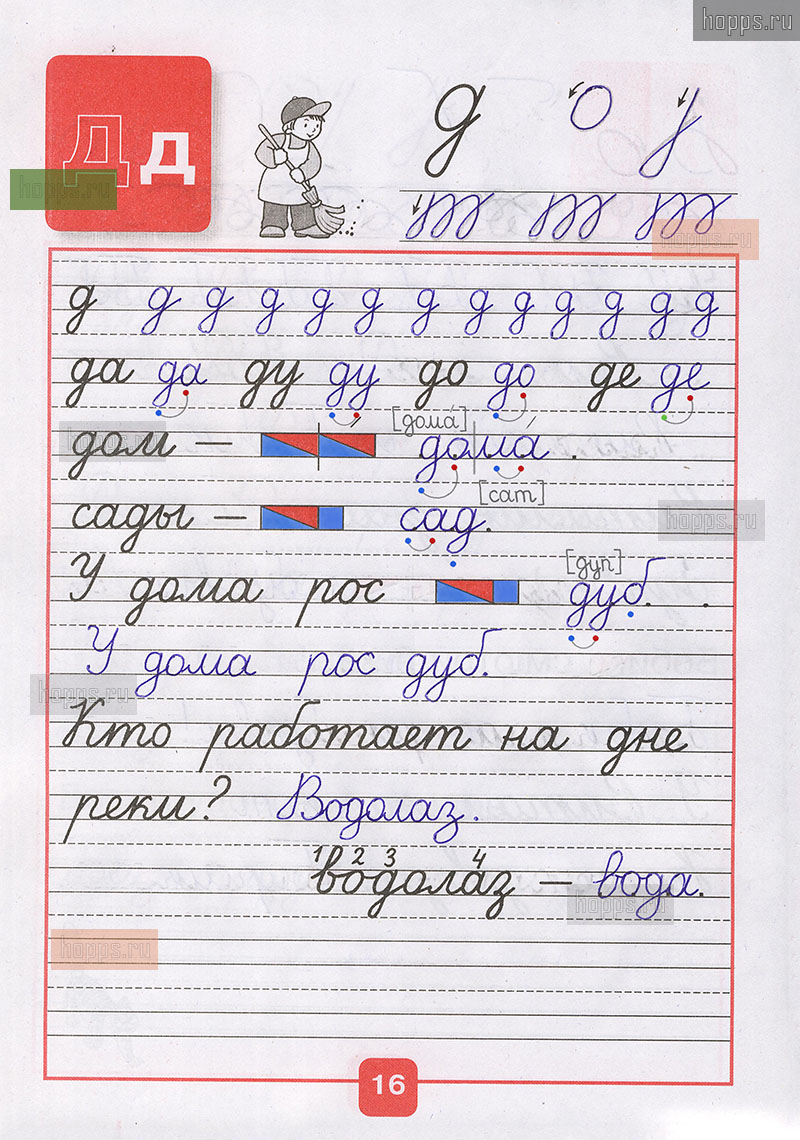 hopps.ru
Д д
hopps.ru
д о
hopps.ru
д д д д д д д д д д д д
да да ду ду до до де де
[дома́]
hopps.ru
дом — дома́ .
[сат]
сады — сад.
hopps.ru
[дуп]
У дома рос дуб. .
У дома рос дуб.
hopps.ru
Кто работает на дне
реки? Водолаз.
1 2 3 4
водолаз — вода.
hopps.ru
hopps.ru
16